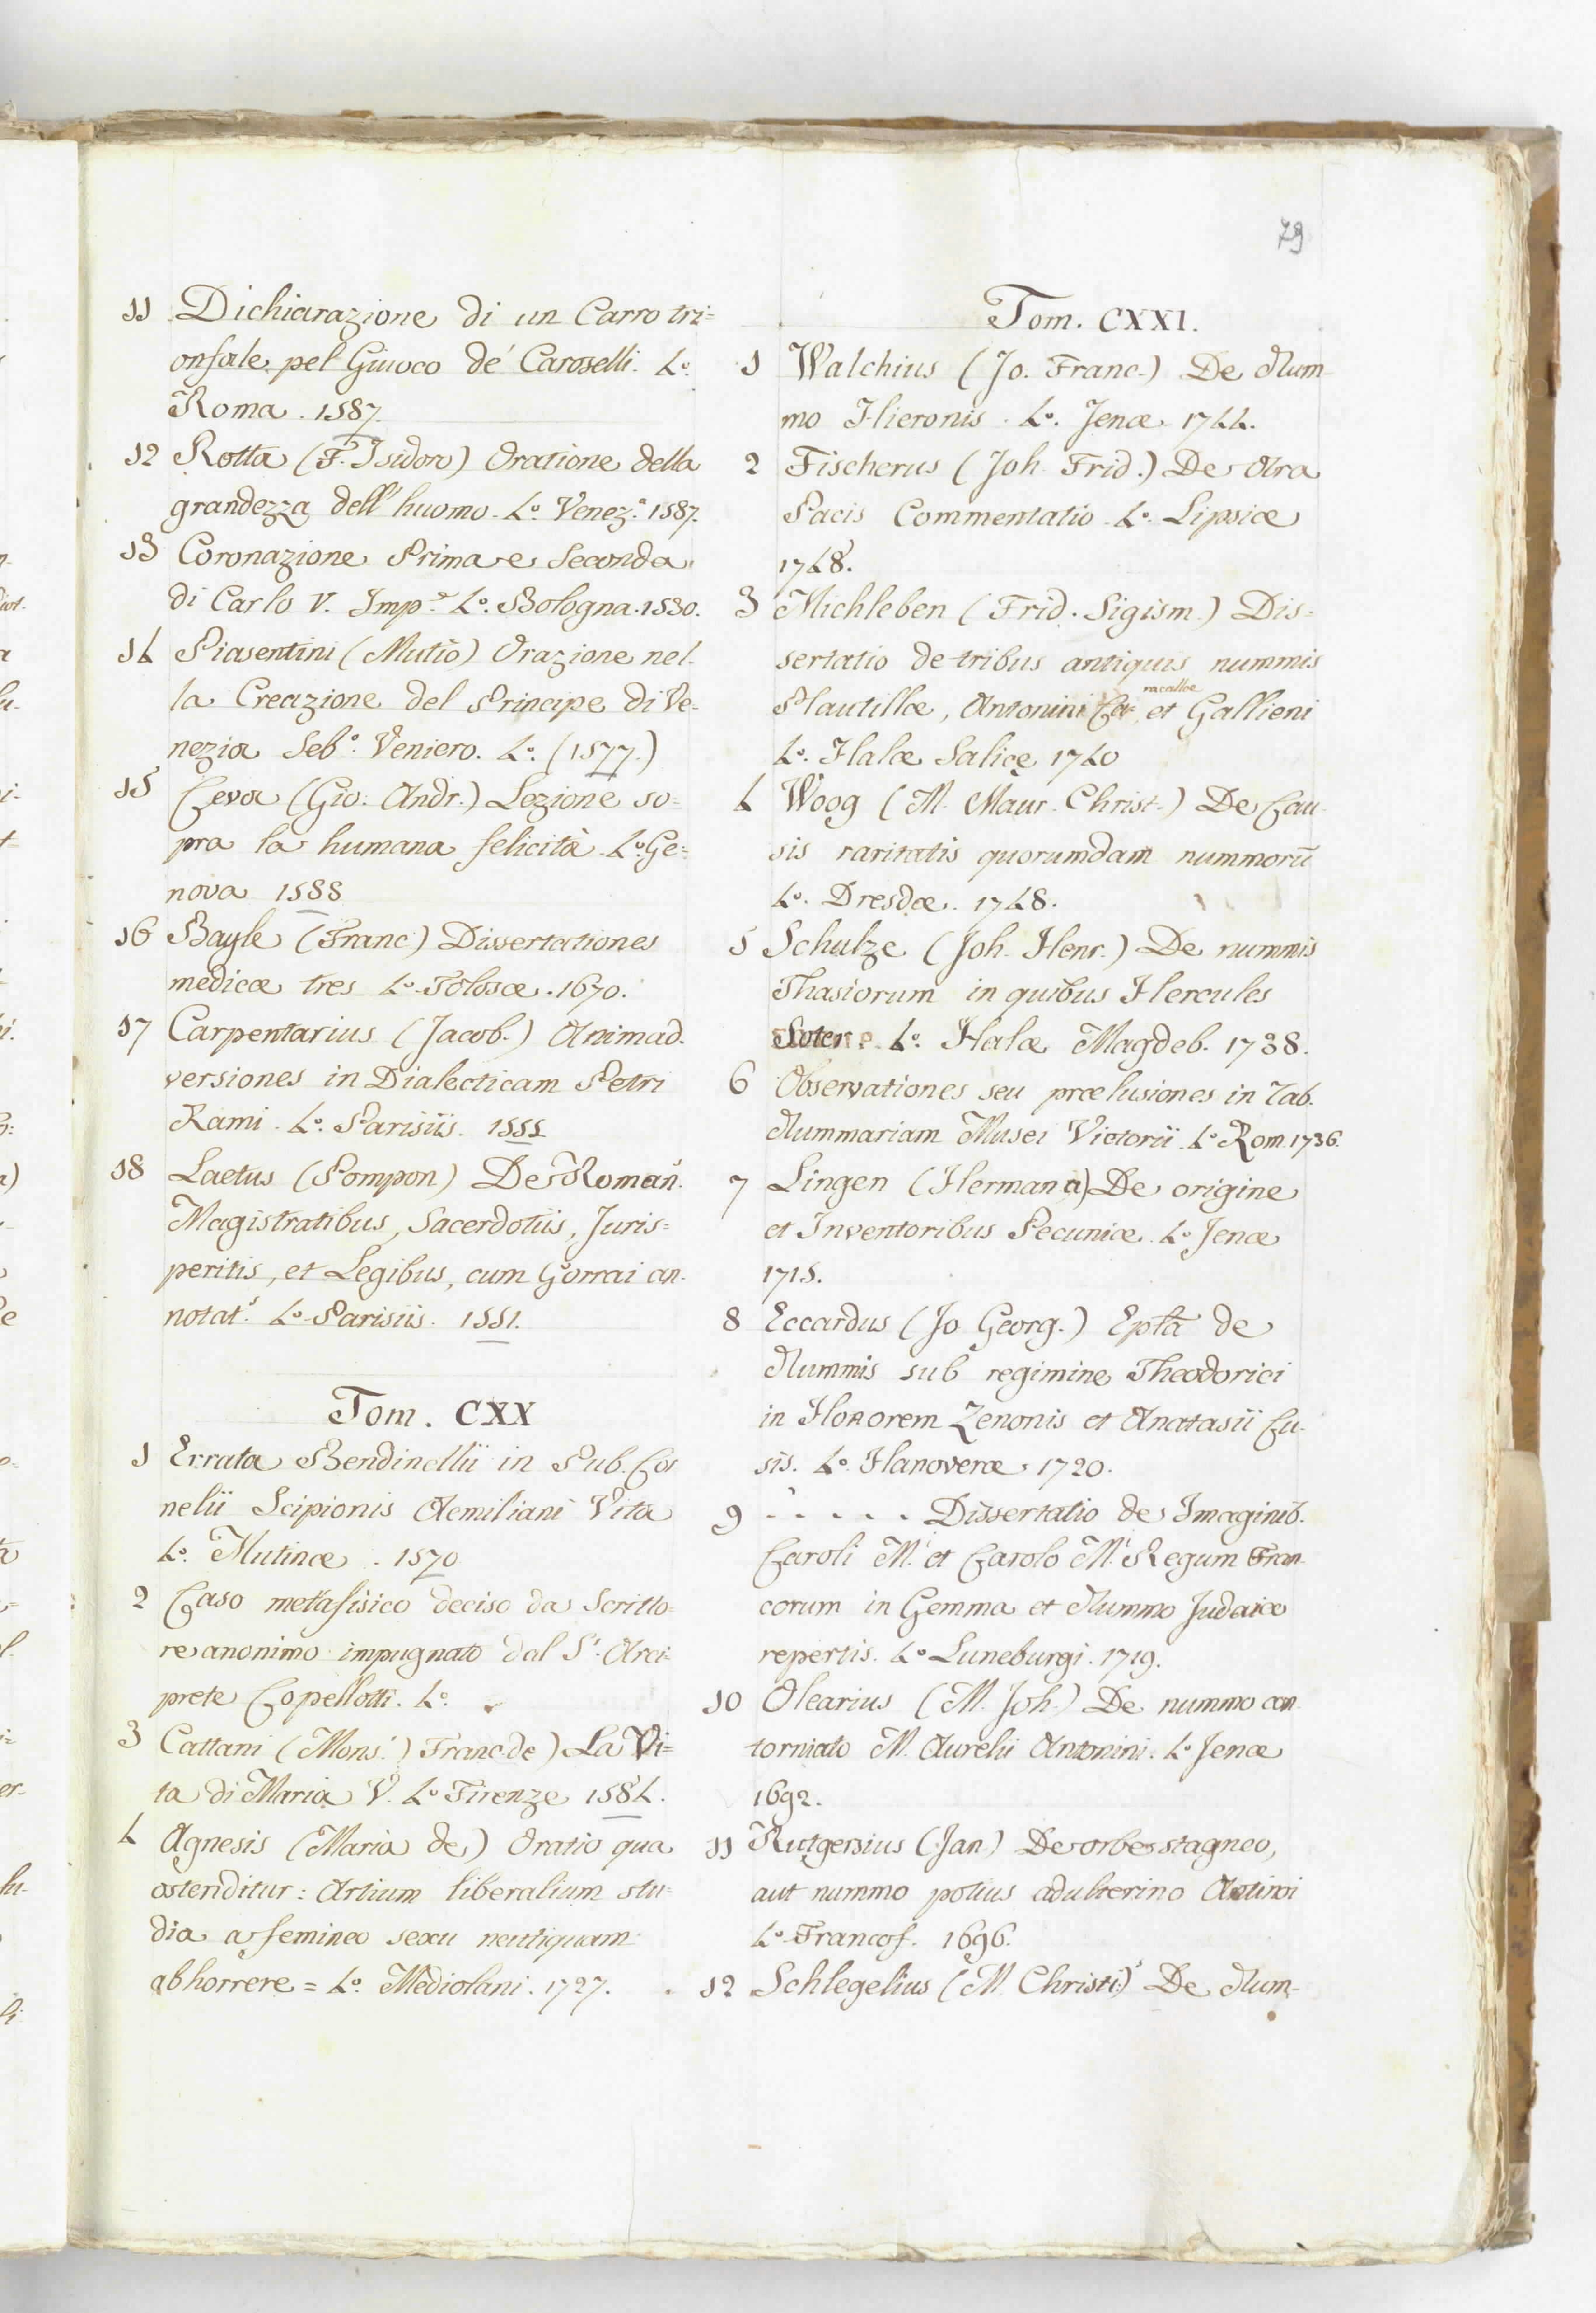 79
11 Dichiarazione di un Carro tri=
onfale pel Giuoco de' Caroselli. 4.º
Roma. 1587.
12 Rotta (F. Isidoro) Oratione della
grandezza dell'huomo. 4.º Venez.ª 1587.
13 Coronazione Prima e Seconda
di Carlo V. Imp.e 4.º Bologna. 1530.
14 Piasentini (Mutio) Orazione nel-
la Creazione del Principe di Ve=
nezia Seb.º Veniero. 4.º (1577.)
15 Ceva (Gio: Andr.) Lezione so=
pra la humana felicità. 4.º Ge=
nova 1588
16 Bayle (Franc.) Dissertationes
medicæ tres 4.º Tolosæ. 1670.
17 Carpentarius (Jacob.) Animad-
versiones in Dialecticam Petri
Rami. 4.º Parisiis. 1555
18 Laetus (Pompon) De Roman.s
Magistratibus, Sacerdotiis, Juris=
peritis, et Legibus, cum Gorrai an-
notat.s 4.º Parisiis. 1551.
Tom. CXX
1 Errata Bendinellii in Pub. Cor
nelii Scipionis Aemiliani Vita
4.º Mutinæ. 1570
2 Caso metafisico deciso da Scritto=
re anonimo impugnato dal S.r Arci=
prete Copellotti. 4.º
3 Cattani (Mons.r) Franc. de) La Vi=
ta di Maria V. 4.º Firenze 1584.
4 Agnesis (Maria de) Oratio qua
ostenditur: Artium liberalium stu=
dia a femineo sexu neutiquam
abhorrere = 4.º Mediolani. 1727.
Tom. CXXI.
1 Walchius (Jo. Franc.) De Num-
mo Hieronis. 4.º Jenæ. 1744.
2 Fischerus (Joh. Frid.) De Ara
Pacis Commentatio. 4.º Lipsiæ
1748.
3 Michleben (Frid. Sigism.) Dis=
sertatio de tribus antiquis nummis
Plautillæ, Antonini Caracallæ et Gallieni
4.º Halæ Salicæ 1740
4 Woog (M. Maur. Christ.) De Cau-
sis raritatis quorumdam nummorū
4.º Dresdæ. 1748.
5 Schulze (Joh. Henr.) De nummis
Thasiorum in quibus Hercules
Soter. 4.º Halæ Magdeb. 1738.
6 Observationes seu prælusiones in Tab.
Nummariam Musei Victorii. 4.º Rom. 1736.
7 Lingen (Hermana) De origine
et Inventoribus Pecuniæ. 4.º Jenæ
1715.
8 Eccardus (Jo Georg.) Eplā de
Nummis sub regimine Theodorici
in Honorem Zenonis et Anatasii Cu-
sis. 4.º Hanoveræ. 1720.
9 . . . . . Dissertatio de Imaginib.
Caroli M.i et Carolo M.i Regum Fran-
corum in Gemma et Nummo Judaico
repertis. 4.º Luneburgi. 1719.
10 Olearius (M. Joh.) De nummo con-
torniato M. Aurelii Antonini. 4.º Jenæ
1692.
11 Rutgersius (Jan) De orbe stagneo,
aut nummo potius adulterino Antinoi
4.º Francof. 1696.
12 Schlegelius (M. Christi.) De Num-